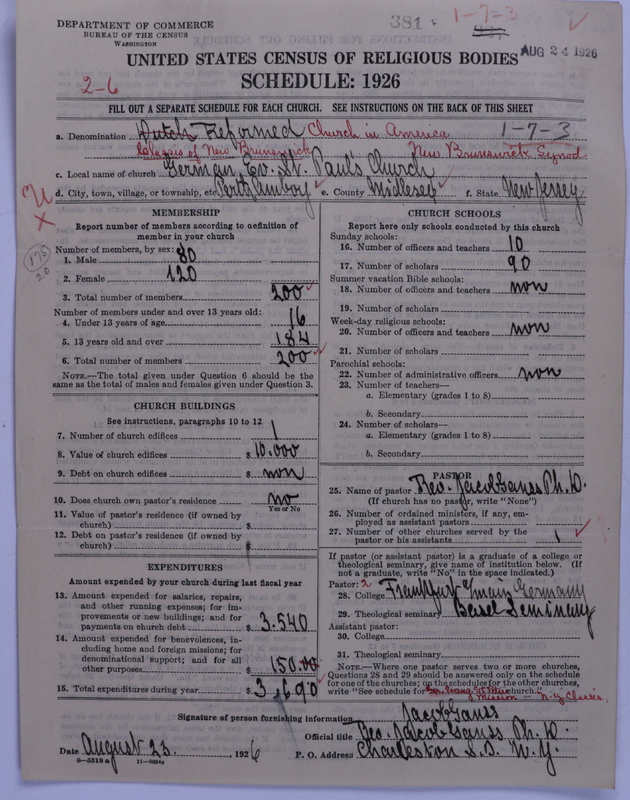 DEPARTMENT OF COMMERCE
BUREAU OF THE CENSUS
WASHINGTON
381
1-7-3
AUG 24 1926
UNITED STATES CENSUS OF RELIGIOUS BODIES
SCHEDULE: 1926
2-6
FILL OUT A SEPARATE SCHEDULE FOR EACH CHURCH. SEE INSTRUCTIONS ON THE BACK OF THIS SHEET
a. Denomination Dutch Reformed Church in America 1-7-3
Classis of New Brunswick New Brunswick Synod
c. Local name of church German Ev. St. Paul's Church
d. City, town, village, or township, etc. Perth Amboy e. County Middlesex f. State New Jersey
MEMBERSHIP
Report number of members according to definition of
member in your church
Number of members, by sex:
1. Male 80
2. Female 120
3. Total number of members 200
Number of members under and over 13 years old:
4. Under 13 years of age 16
5. 13 years old and over 184
6. Total number of members 200
NOTE.—The total given under Question 6 should be the
same as the total of males and females given under Question 3.
175
20
CHURCH BUILDINGS
See instructions, paragraphs 10 to 12
7. Number of church edifices 1
8. Value of church edifices $ 10.000
9. Debt on church edifices $ non
10. Does church own pastor's residence no
Yes or No
11. Value of pastor's residence (if owned by
church) $
12. Debt on pastor's residence (if owned by
church) $
EXPENDITURES
Amount expended by your church during last fiscal year
13. Amount expended for salaries, repairs,
and other running expenses; for im-
provements or new buildings; and for
payments on church debt $ 3.540
14. Amount expended for benevolences, in-
cluding home and foreign missions; for
denominational support; and for all
other purposes $ 150.00
15. Total expenditures during year $ 3,690
CHURCH SCHOOLS
Report here only schools conducted by this church
Sunday schools:
16. Number of officers and teachers 10
17. Number of scholars 90
Summer vacation Bible schools:
18. Number of officers and teachers non
19. Number of scholars
Week-day religious schools:
20. Number of officers and teachers non
21. Number of scholars
Parochial schools:
22. Number of administrative officers non
23. Number of teachers—
a. Elementary (grades 1 to 8)
b. Secondary
24. Number of scholars—
a. Elementary (grades 1 to 8)
b. Secondary
PASTOR
25. Name of pastor Rev. Jacob Ganss Ph. D.
(If church has no pastor, write "None")
26. Number of ordained ministers, if any, em-
ployed as assistant pastors
27. Number of other churches served by the
pastor or his assistants 1
If pastor (or assistant pastor) is a graduate of a college or
theological seminary, give name of institution below. (If
not a graduate, write "No" in the space indicated.)
Pastor: 2
28. College Frankfurt a/main Germany
29. Theological seminary Basel Seminary
Assistant pastor:
30. College
31. Theological seminary
NOTE.—Where one pastor serves two or more churches,
Questions 28 and 29 should be answered only on the schedule
for one of the churches; on the schedules for the other churches,
write "See schedule for church."
Mission — N.Y. Classis
Signature of person furnishing information Jacob Ganss
Official title Rev. Jacob Ganss Ph. D.
Date August 23, 1926 P. O. Address Charleston S.I. N.Y.
8—5518 a